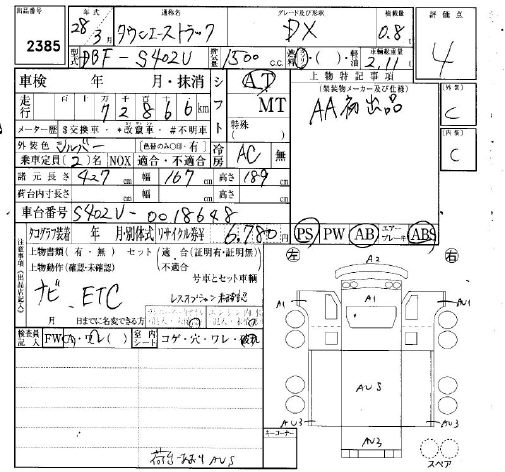 出品番号
2385
年式 28年3月
通称名 タウンエーストラック
グレード及び形状 DX
積載量 0.8t
評価点 4
型式 DBF-S402U
排気量 1500 C.C.
車輌総重量 2.11t
車検 年 月・抹消
シフト AT MT
上物特記事項
(架装物メーカー及び仕様)
AA初出品
外装 C
内装 C
走行 72866km
メーター歴 $交換車・*改竄車・#不明車
特殊( )
外装色 シルバー (色替のみ○印・有)
冷房 AC 無
乗車定員(2)名 NOX 適合・不適合
諸元長さ 427cm 幅 167cm 高さ 189cm
荷台内寸長さ cm 幅 cm 高さ cm
車台番号 S402U-0018648
タコグラフ装着 年 月・別体式 リサイクル券¥ 6,780
PS PW AB エアーブレーキ ABS
注意事項(出品店記入)
上物書類(有・無) セット(適合(証明有・証明無)
上物動作(確認・未確認) 不適合
号車とセット車輌
ナビ、ETC
レスオプション未確認
月 日までに名変できる方
検査員記入 FW(A)・ワレ( ) 室内シート コゲ・穴・ワレ・破れ
左 右
A2
A1 A1 AU1
AUS
AU3 AU3
AU3
キーコーナー
スペア
荷台一面より AUS